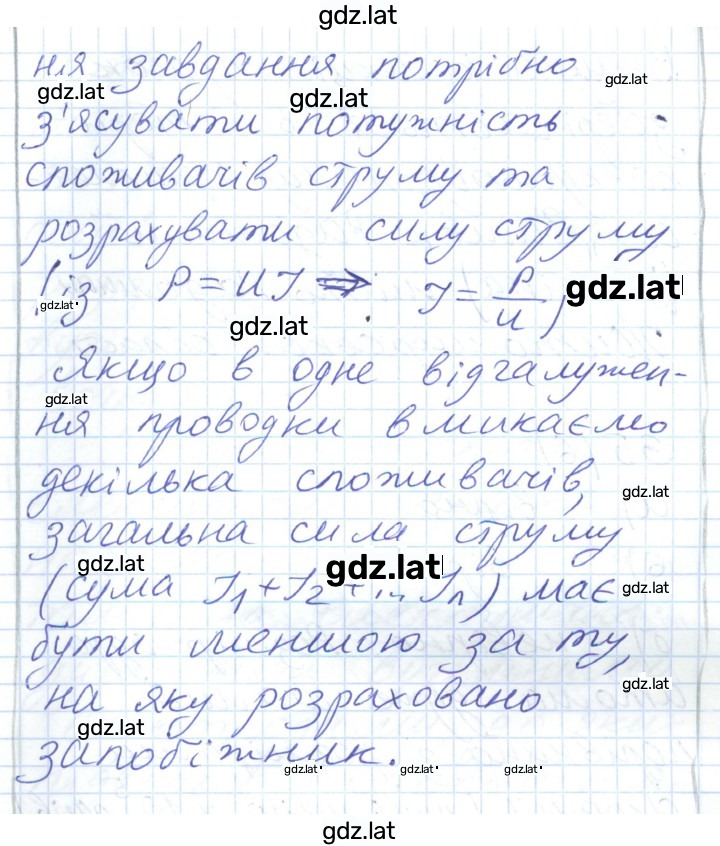 gdz.lat
ння завдання потрібно
gdz.lat
gdz.lat
gdz.lat
з'ясувати потужність
споживачів струму та
розрахувати силу струму
(із P = UI ⇒ I = P/U)
gdz.lat
gdz.lat
gdz.lat
Якщо в одне відгалужен-
gdz.lat
ня проводки вмикаємо
декілька споживачів,
gdz.lat
загальна сила струму
gdz.lat
gdz.lat
(сума I₁ + I₂ + ... Iₙ) має
gdz.lat
бути меншою за ту,
gdz.lat
на яку розраховано
gdz.lat
запобіжник.
gdz.lat
gdz.lat
gdz.lat
gdz.lat